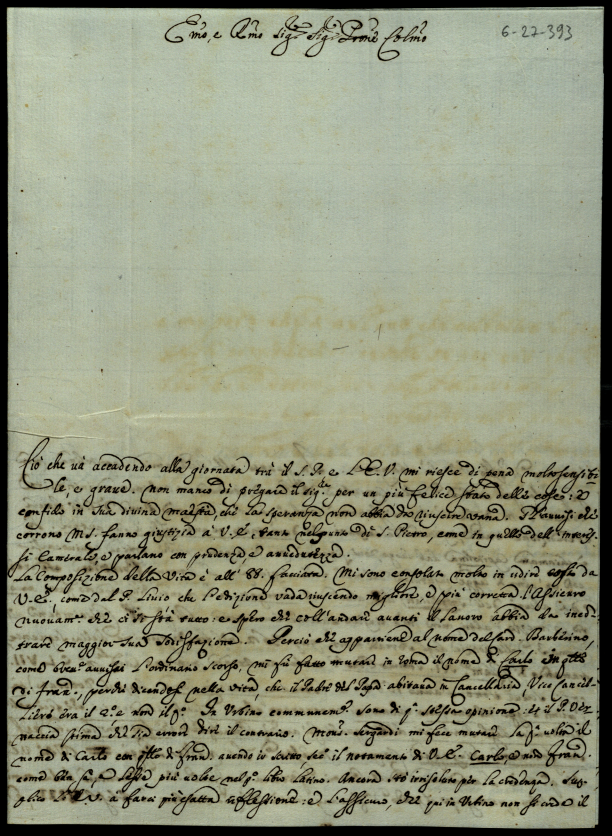 Emo, e Rmo Sigr Sigr Prone Colmo
6-27-393
Ciò che và accadendo alla giornata trà il S. P. e L'E. V. mi riesce di pena molto sensibi
le, e grave. non manco di pregare il Sigre per un più felice stato delle cose: e
confido in Sua divina maestà che la speranza non abbia da riuscire vana. Gli avvisi che
corrono M.S. fanno giustizia à V. E., tanto nel punto di S. Pietro, come in quello dell'interes
si Camerali, e parlano con prudenza, e avvedutezza.
La Composizione della Vita è all' 88. facciata. Mi sono consolato molto in udire costà da
V. E., come dal P. Livio che l'edizione vada riuscendo migliore, e più corretta. L'Assicuro
nuovamte che ci si fà tutto: e spero che coll'andare avanti il Lavoro abbia da incon
trare maggior sua Sodisfazione. Perciò che appartiene al nome del Card. Barberino,
come avvisai l'ordinario scorso, mi fù fatto mutare in Roma il nome di Carlo in qllo
di Franco, perchè dicendosi nella vita, che il Padre del Papa abitava in Cancellaria, Vice Cancel-
liero era il 2o e non il po. In Urbino communemte sono di qa stessa opinione: et il P. 
 stima che sia errore dire il contrario. Monsr Sergardi mi fece mutare la pa volta il
nome di Carlo con qllo di Franco avendo io scritto secdo il notamento di V. E. Carlo, e non Franco
come ben sà, si legge più volte nel po libro latino. Ancora stò irrisoluto per la credenza. Sup
plico L'E. V. à farci più esatta reflessione: e l'assicuro, che qui in Urbino non si crede il